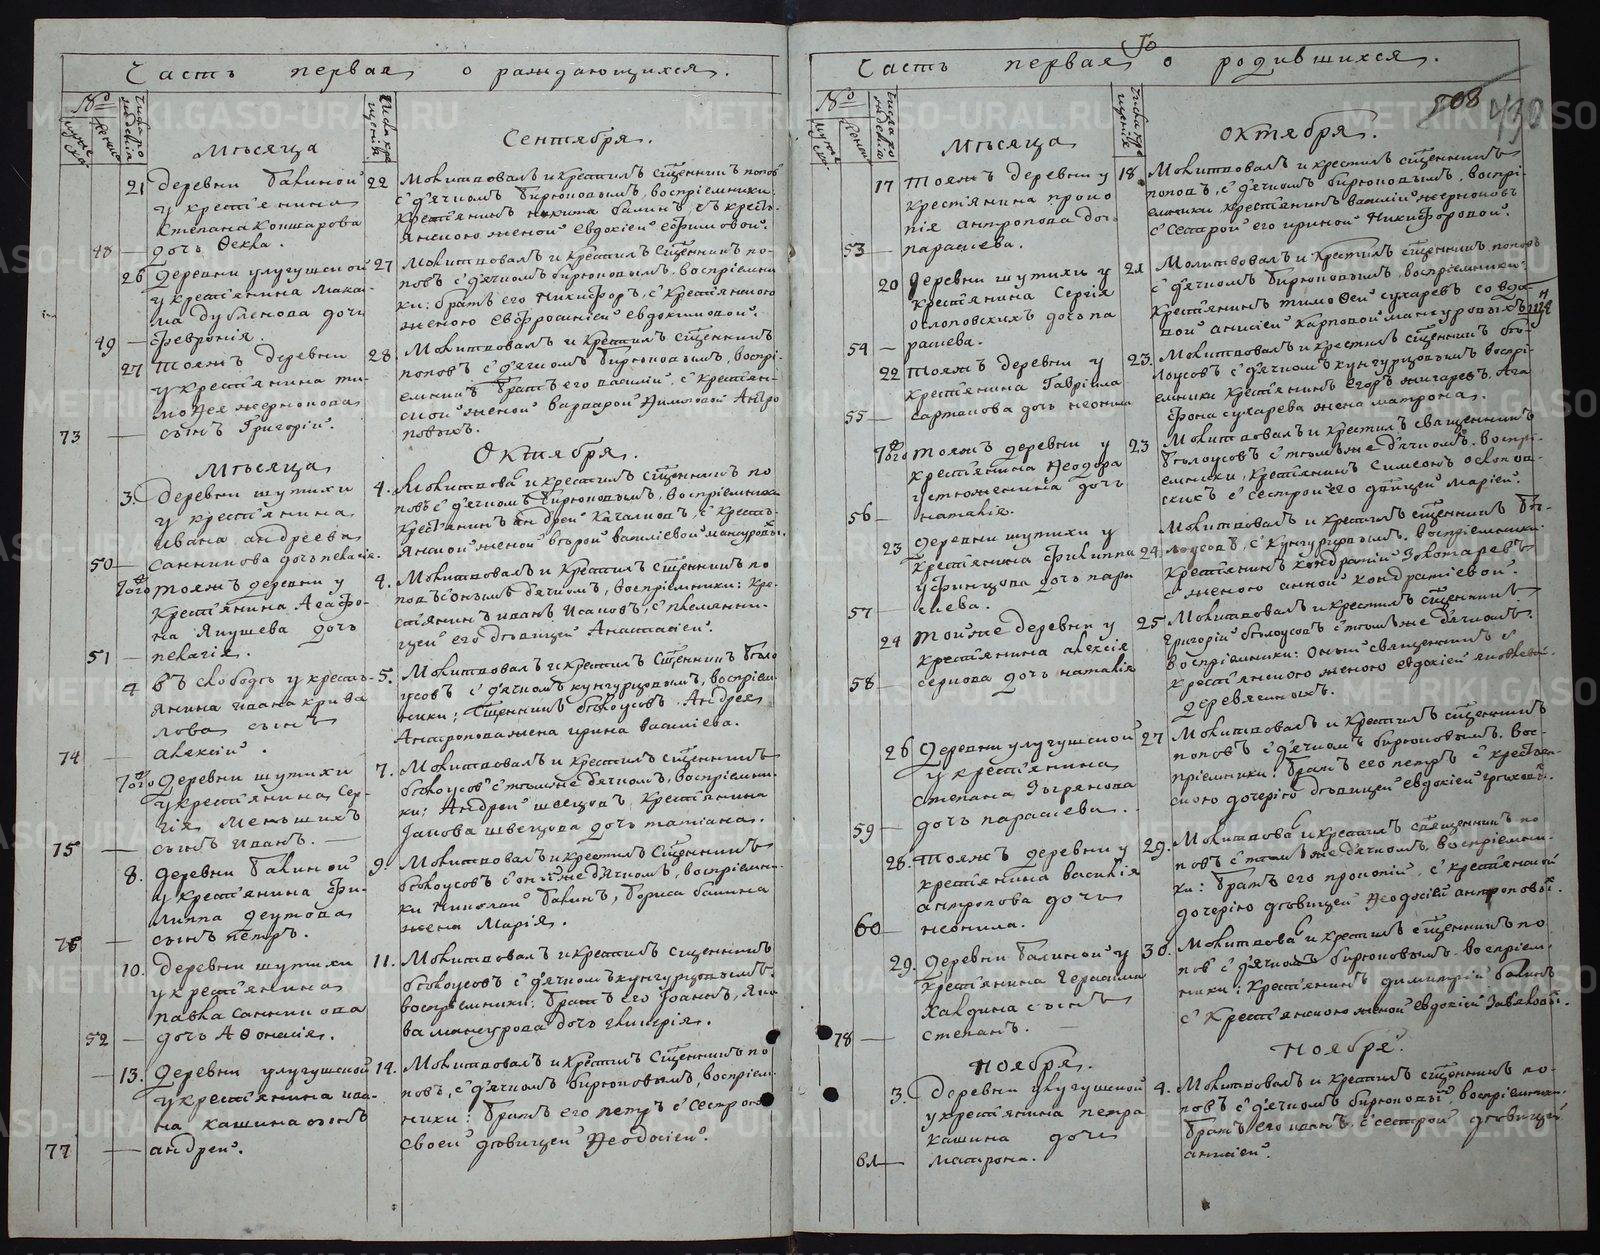 Часть первая о раждающихся.
Мѣсяца Сентября.
21 деревни Балиной
у крестьянина
Степана Коншарова
48 — дочь Ѳекла.
22 Молитвовалъ и крестилъ сщенникъ поповъ
съ дьячкомъ Бирюковымъ, воспріемники:
крестьянинъ никита балинъ, съ кресть-
янскою женой Евдокіей Ефимовой.
26 Деревни улугушской
у крестьянина Макси-
ма дубленова дочь
49 — Февронія.
27 Молитвовалъ и крестилъ сщенникъ по-
повъ съ дьячкомъ бирюковымъ, воспріемни
ки: братъ его Никифоръ, с крестьянскою
женою Евфросиніей Евдокимовой.
27 Тояжъ деревни
у крестьянина ти-
моѲея жернокова
73 — сынъ Григорій.
28 Молитвовалъ и крестилъ сщенникъ
поповъ съ дьячкомъ бирюковымъ, воспрі-
емники братъ его василій, с крестьян-
ской женой варварой Филиповой Антро
повыхъ.
Мѣсяца Октября.
3. деревни шутихи
у крестьянина
ивана андреева
50 — Санникова дочь пелагія.
4. Молитвова и крестилъ сщенникъ по
повъ с дьячкомъ бирюковымъ, воспріемники
крестьянинъ андрей Качаликовъ, с кресть-
янской женой второй василіевой мансуровы.
Того тояжъ деревни у
крестьянина Агафо-
на Якушева дочь
51 — пелагія.
4. Молитвовалъ и крестилъ сщенникъ по
повъ с онымъ дьячкомъ, воспріемники: кре-
стьянинъ иванъ Исаковъ, с племянни-
цей его дѣвицей Анастасіей.
4 въ слободѣ у кресть-
янина ивана крива
лова сынъ
74 — алексій.
5. Молитвовалъ и крестилъ сщенникъ бѣло
усовъ с дьячкомъ кунгурцовымъ, воспріем
ники: сщенникъ бѣлоусовъ. Андрея
Антропова жена ирина василіева.
Того Деревни шутихи
у крестьянина Сер-
гія Меньшихъ
75 — сынъ Иванъ.
7. Молитвовалъ и крестилъ сщенникъ
бѣлоусовъ с тѣмже дьячкомъ, воспріемни-
ки: Андрей швецовъ, крестьянина
Іакова швецова дочь татіана.
8. деревни Балиной
у крестьянина Фи-
липпа деутова
76 — сынъ петръ.
9. Молитвовалъ и крестилъ сщенникъ
бѣлоусовъ с онымже дьячкомъ, воспріемни-
ки Николай балинъ, Бориса балина
жена Марія.
10. деревни шутихи
у крестьянина
павла санникова
52 — дочь АѲонасія.
11. Молитвовалъ и крестилъ сщенникъ
бѣлоусовъ с дьячкомъ кунгурцовымъ.
воспріемники: братъ его Іоаннъ, Яко
ва мансурова дочь гликерія.
13. Деревни улугушской
у крестьянина ива-
на кашина сынъ
77 — андрей.
14. Молитвовалъ и крестилъ сщенникъ по
повъ, с дьячкомъ бирюковымъ, воспріем-
ники: братъ его петръ с сестрою
своей дѣвицей Ѳеодосіей.
Часть первая о родившихся.
508
430
Мѣсяца октября.
17 Тояжъ деревни у
крестьянина проко
пія антропова дочь
53 — парасцева.
18 Молитвовалъ и крестилъ сщенникъ
поповъ, с дьячкомъ бирюковымъ, воспрі-
емники крестьянинъ василій жерноковъ
с сестрой его ириной Никифоровой.
20 Деревни шутихи у
крестьянина Сергія
ослоповскихъ дочь па
54 — расцева.
21 Молитвовалъ и крестилъ сщенникъ поповъ
с дьячкомъ бирюковымъ, воспріемники:
крестьянинъ тимоѲей сухаревъ со вдо
вой анисіей карповой мансуровыхъ
22 тояжъ деревни у
крестьянина Гавріила
55 — сартакова дочь неонила
23. Молитвовалъ и крестилъ сщенникъ бѣ-
лоусовъ с дьячкомъ кунгурцовымъ воспрі-
емники крестьянинъ егоръ жигаревъ, Ага
фона сухарева жена матрона.
Того тояжъ деревни у
крестьянина Ѳеодора
устюженина дочь
56 — наталія.
23 Молитвовалъ и крестилъ священникъ
бѣлоусовъ с тѣмъже дьячкомъ. воспрі-
емники, крестьянинъ Симеонъ ослопов-
скихъ с сестрой его дѣвицей Маріей.
23 Деревни шутихи у
крестьянина Филиппа
уфинцова дочь пара
57 — сцева.
24. Молитвовалъ и крестилъ сщенникъ бѣ-
лоусовъ, с кунгурцовымъ. воспріемники:
крестьянинъ кондратій Золотаревъ
с женою анной кондратіевой.
24 Тойже деревни у
крестьянина алексія
58 — серкова дочь наталія
25 Молитвовалъ и крестилъ сщенникъ
григорій бѣлоусовъ с тѣмъже дьячкомъ.
воспріемники: оный священникъ с
крестьянскою женою евдокіей яковлевой
деревянныхъ.
26 Деревни улугушской
у крестьянина
Степана Загрянова
59 — дочь парасцева.
27 Молитвовалъ и крестилъ сщенникъ
поповъ с дьячкомъ бирюковымъ. вос-
пріемники: братъ его петръ с крестьян-
скою дочерію дѣвицей евдокіей
28. Тояжъ деревни у
крестьянина василія
антропова дочь
60 — неонила.
29. Молитвова и крестилъ священникъ по
повъ с тѣмъже дьячкомъ, воспріемни-
ки: братъ его прокопій, с крестьянской
дочерію дѣвицей Ѳеодосіей антроповы.
29. Деревни балиной у
крестьянина Герасима
Халдина сынъ
78 — степанъ.
30. Молитвова и крестилъ сщенникъ по
повъ с дьячкомъ бирюковымъ. воспріем-
ники: крестьянинъ димитрій балинъ
с крестьянскою женой евдокіей Завьяловы.
Ноября. Ноября.
3 деревни улугушской
у крестьянина петра
кашина дочь
61 — матрона.
4. Молитвовалъ и крестилъ сщенникъ по-
повъ с дьячкомъ бирюковы воспріемники.
братъ его иванъ, с сестрой дѣвицей
анисіей.